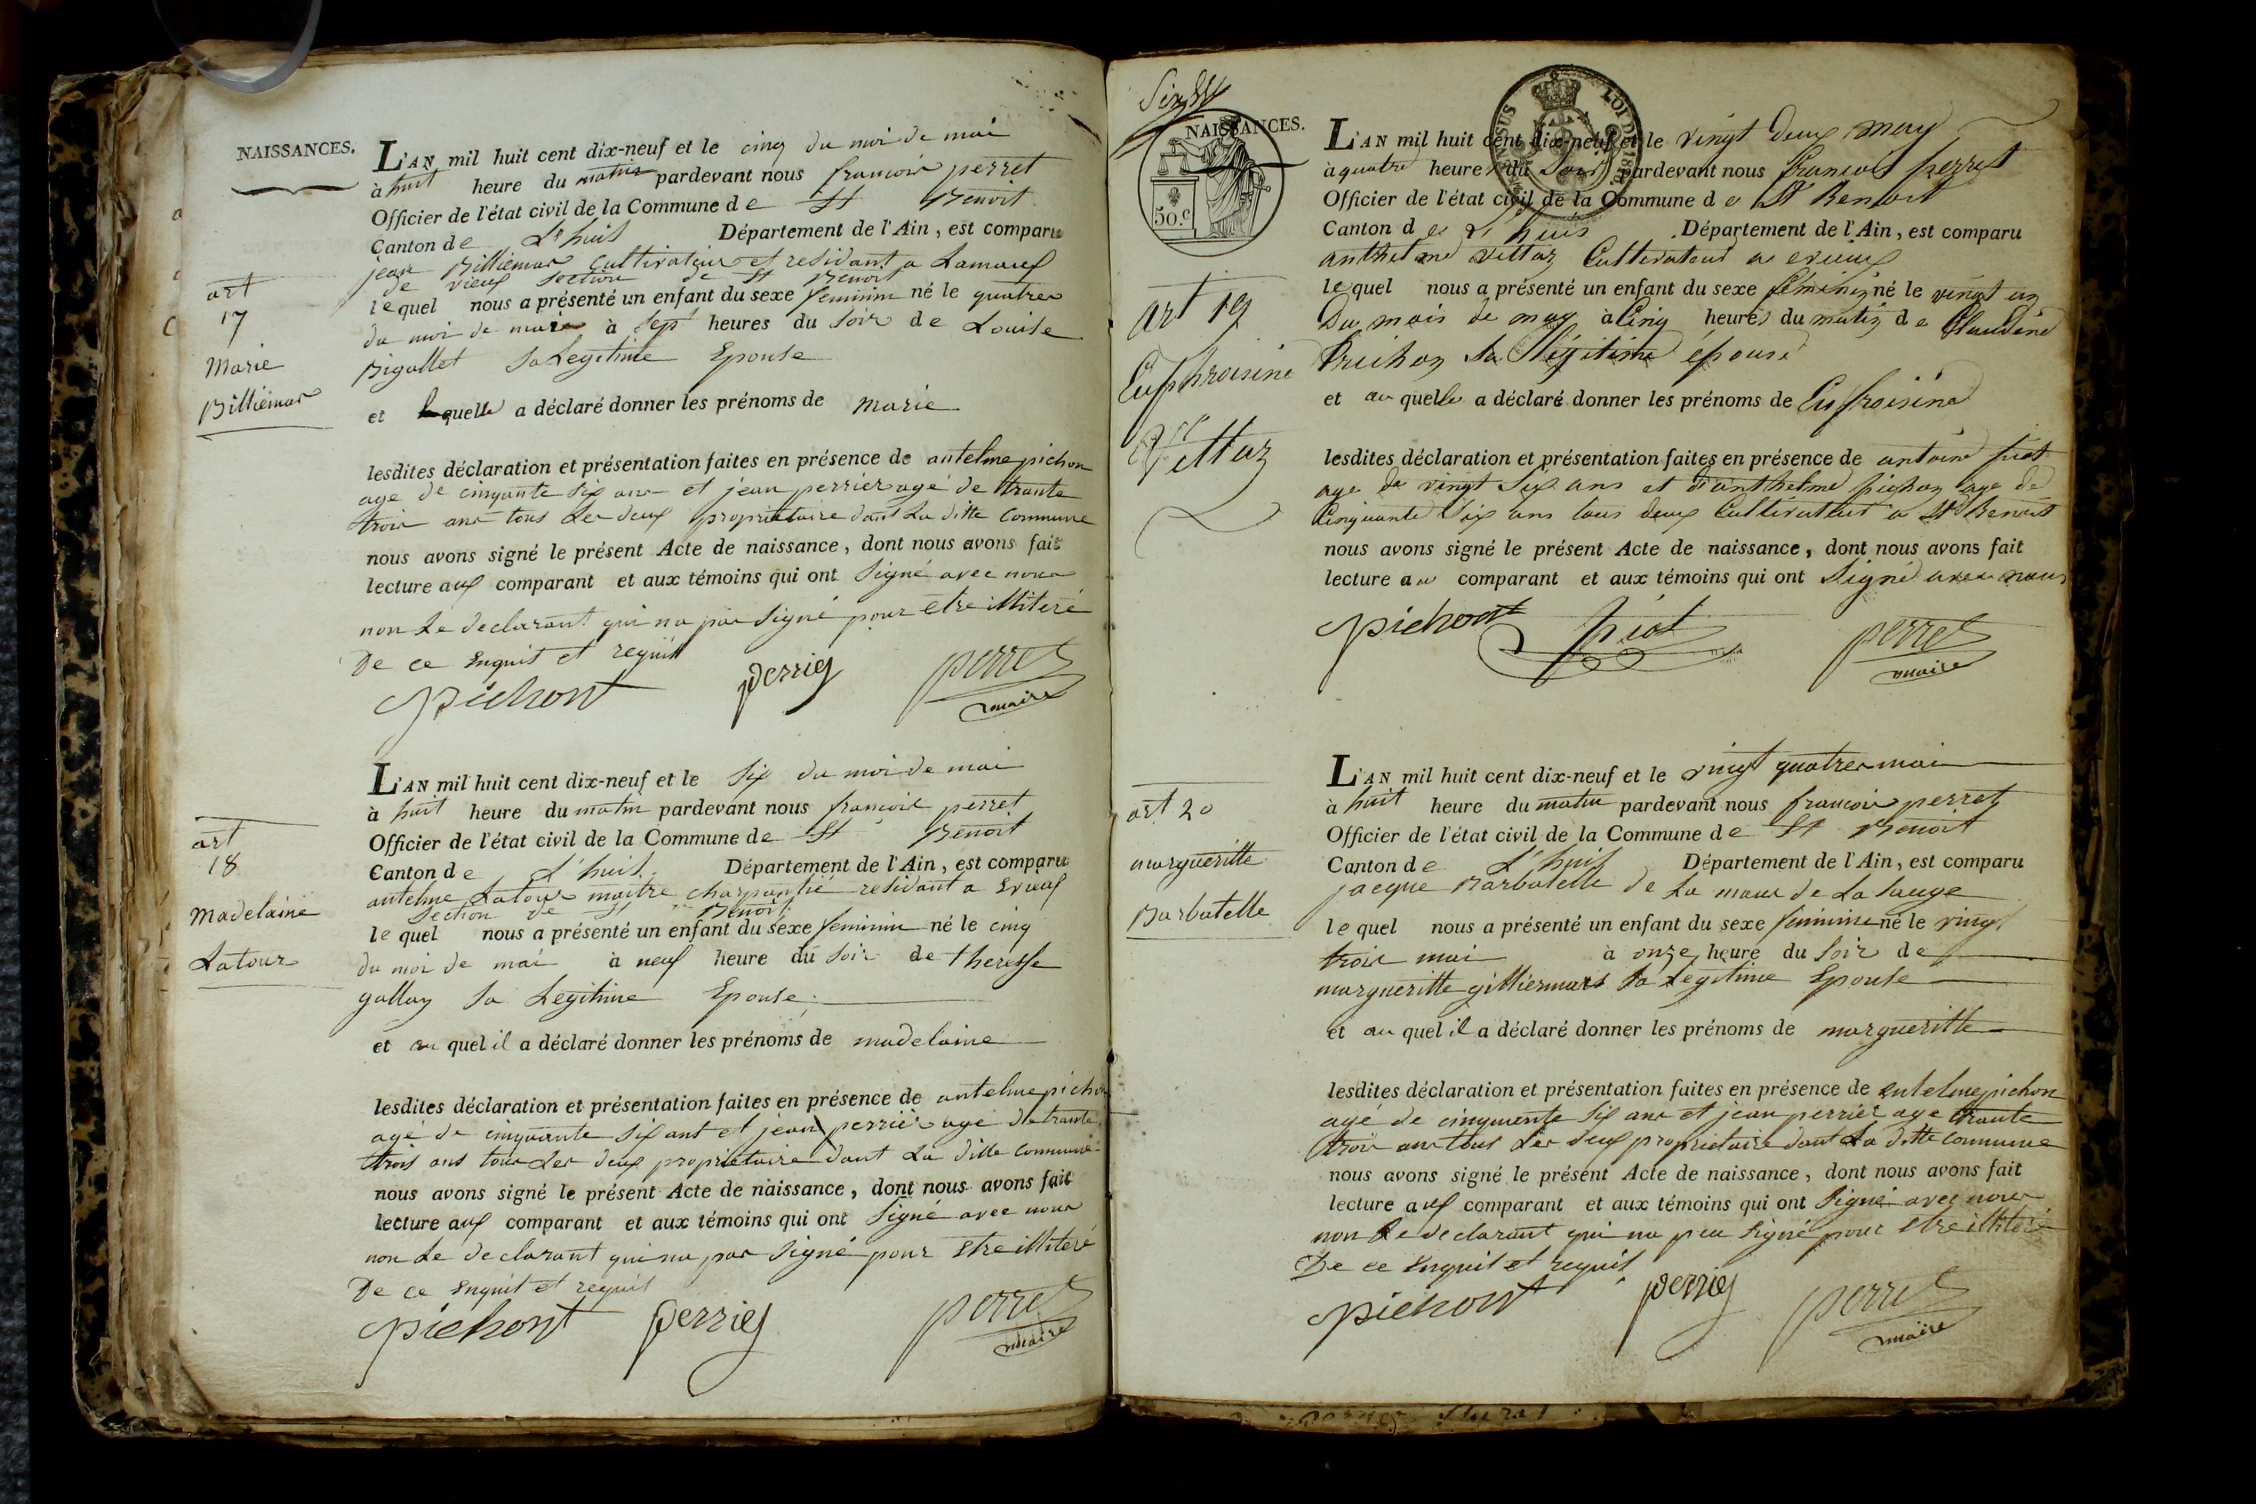 NAISSANCES.
L'AN mil huit cent dix-neuf et le cinq du moi de mai
à huit heure du matin pardevant nous francois perret
Officier de l'état civil de la Commune de St Benoit
Canton de L'huis Département de l'Ain, est comparu
jean Billiemas Cultivateur et residant a Lamaux
de vieux section de St Benoit
art
17
Marie
Billiemas
lequel nous a présenté un enfant du sexe feminin né le quatre
du moi de mai à sept heures du soir de Louise
Bigallet sa Legitime Epouse
et laquelle a déclaré donner les prénoms de marie
lesdites déclaration et présentation faites en présence de antelme pichon
age de cinquante six ans et jean perrier agé de trante
trois ans tous les deux propriétaire dans La ditte Commune
nous avons signé le présent Acte de naissance, dont nous avons fait
lecture aux comparant et aux témoins qui ont signé avec nous
non Le declarant qui na pas signé pour etre illiteré
De ce enquit et requit
pichont perrier perret
maire
L'AN mil huit cent dix-neuf et le six du moi de mai
à huit heure du matin pardevant nous francois perret
Officier de l'état civil de la Commune de St Benoit
Canton de L'huis Département de l'Ain, est comparu
antelme Latour maitre charpantié residant a Evieux
section de St Benoit
art
18
Madelaine
Latour
lequel nous a présenté un enfant du sexe feminin né le cinq
du moi de mai à neuf heure du soir de theresse
gallay sa Legitime Epouse
et au quel il a déclaré donner les prénoms de madelaine
lesdites déclaration et présentation faites en présence de antelme pichon
agé de cinquante six ans et jean perrier agé de trante
trois ans tous Les deux propriétaire dant La ditte commune
nous avons signé le présent Acte de naissance, dont nous avons fait
lecture aux comparant et aux témoins qui ont signé avec nous
non Le declarant qui na pas signé pour etre illiteré
De ce enquit et requit
pichont perrier perret
maire
NAISSANCES.
50.c
LOI DE 1816
L'AN mil huit cent dix-neuf et le vingt deux may
à quatre heures du soir pardevant nous francois perret
Officier de l'état civil de la Commune de St Benoit
Canton de L huis Département de l'Ain, est comparu
anthelme Vettaz Cultivateur a evieux
art 19
Euphroisine
Vettaz
lequel nous a présenté un enfant du sexe féminin né le vingt un
Du mois de may à Cinq heures du matin de Claudine
Trichon sa légitime épouse
et au quelle a déclaré donner les prénoms de Eufroisine
lesdites déclaration et présentation faites en présence de antoine piot
age de vingt six ans et d'anthelme pichon age de
Cinquante six ans tous deux Cultivateur a St Benoit
nous avons signé le présent Acte de naissance, dont nous avons fait
lecture au comparant et aux témoins qui ont signé avec nous
pichont piot perret
maire
L'AN mil huit cent dix-neuf et le vingt quatre mai
à huit heure du matin pardevant nous francois perret
Officier de l'état civil de la Commune de St Benoit
Canton de L'huis Département de l'Ain, est comparu
jacque Barbatelle de La maux de La sauge
art 20
margueritte
Barbatelle
lequel nous a présenté un enfant du sexe feminine né le vingt
trois mai à onze heure du soir de
margueritte gilliermars sa Legitime Epouse
et au quel il a déclaré donner les prénoms de margueritte
lesdites déclaration et présentation faites en présence de entelme pichon
agé de cinquante six ans et jean perrier age trante
trois ans tous Les deux propriétaire dant La ditte commune
nous avons signé le présent Acte de naissance, dont nous avons fait
lecture aux comparant et aux témoins qui ont signé avec nous
non Le declarant qui na pas signé pour etre illiteré
De ce enquit et requit
pichont perrier perret
maire